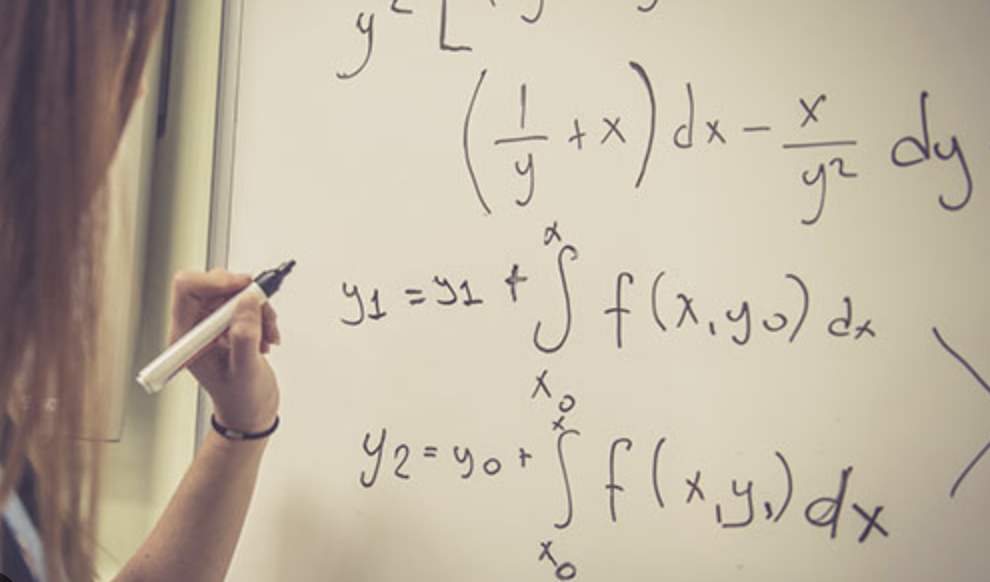 y² [
(1/y + x) dx - x/y² dy
y₁ = y₁ + ∫_{x₀}^{x} f(x, y₀) dx
y₂ = y₀ + ∫_{x₀}^{x} f(x, y₁) dx